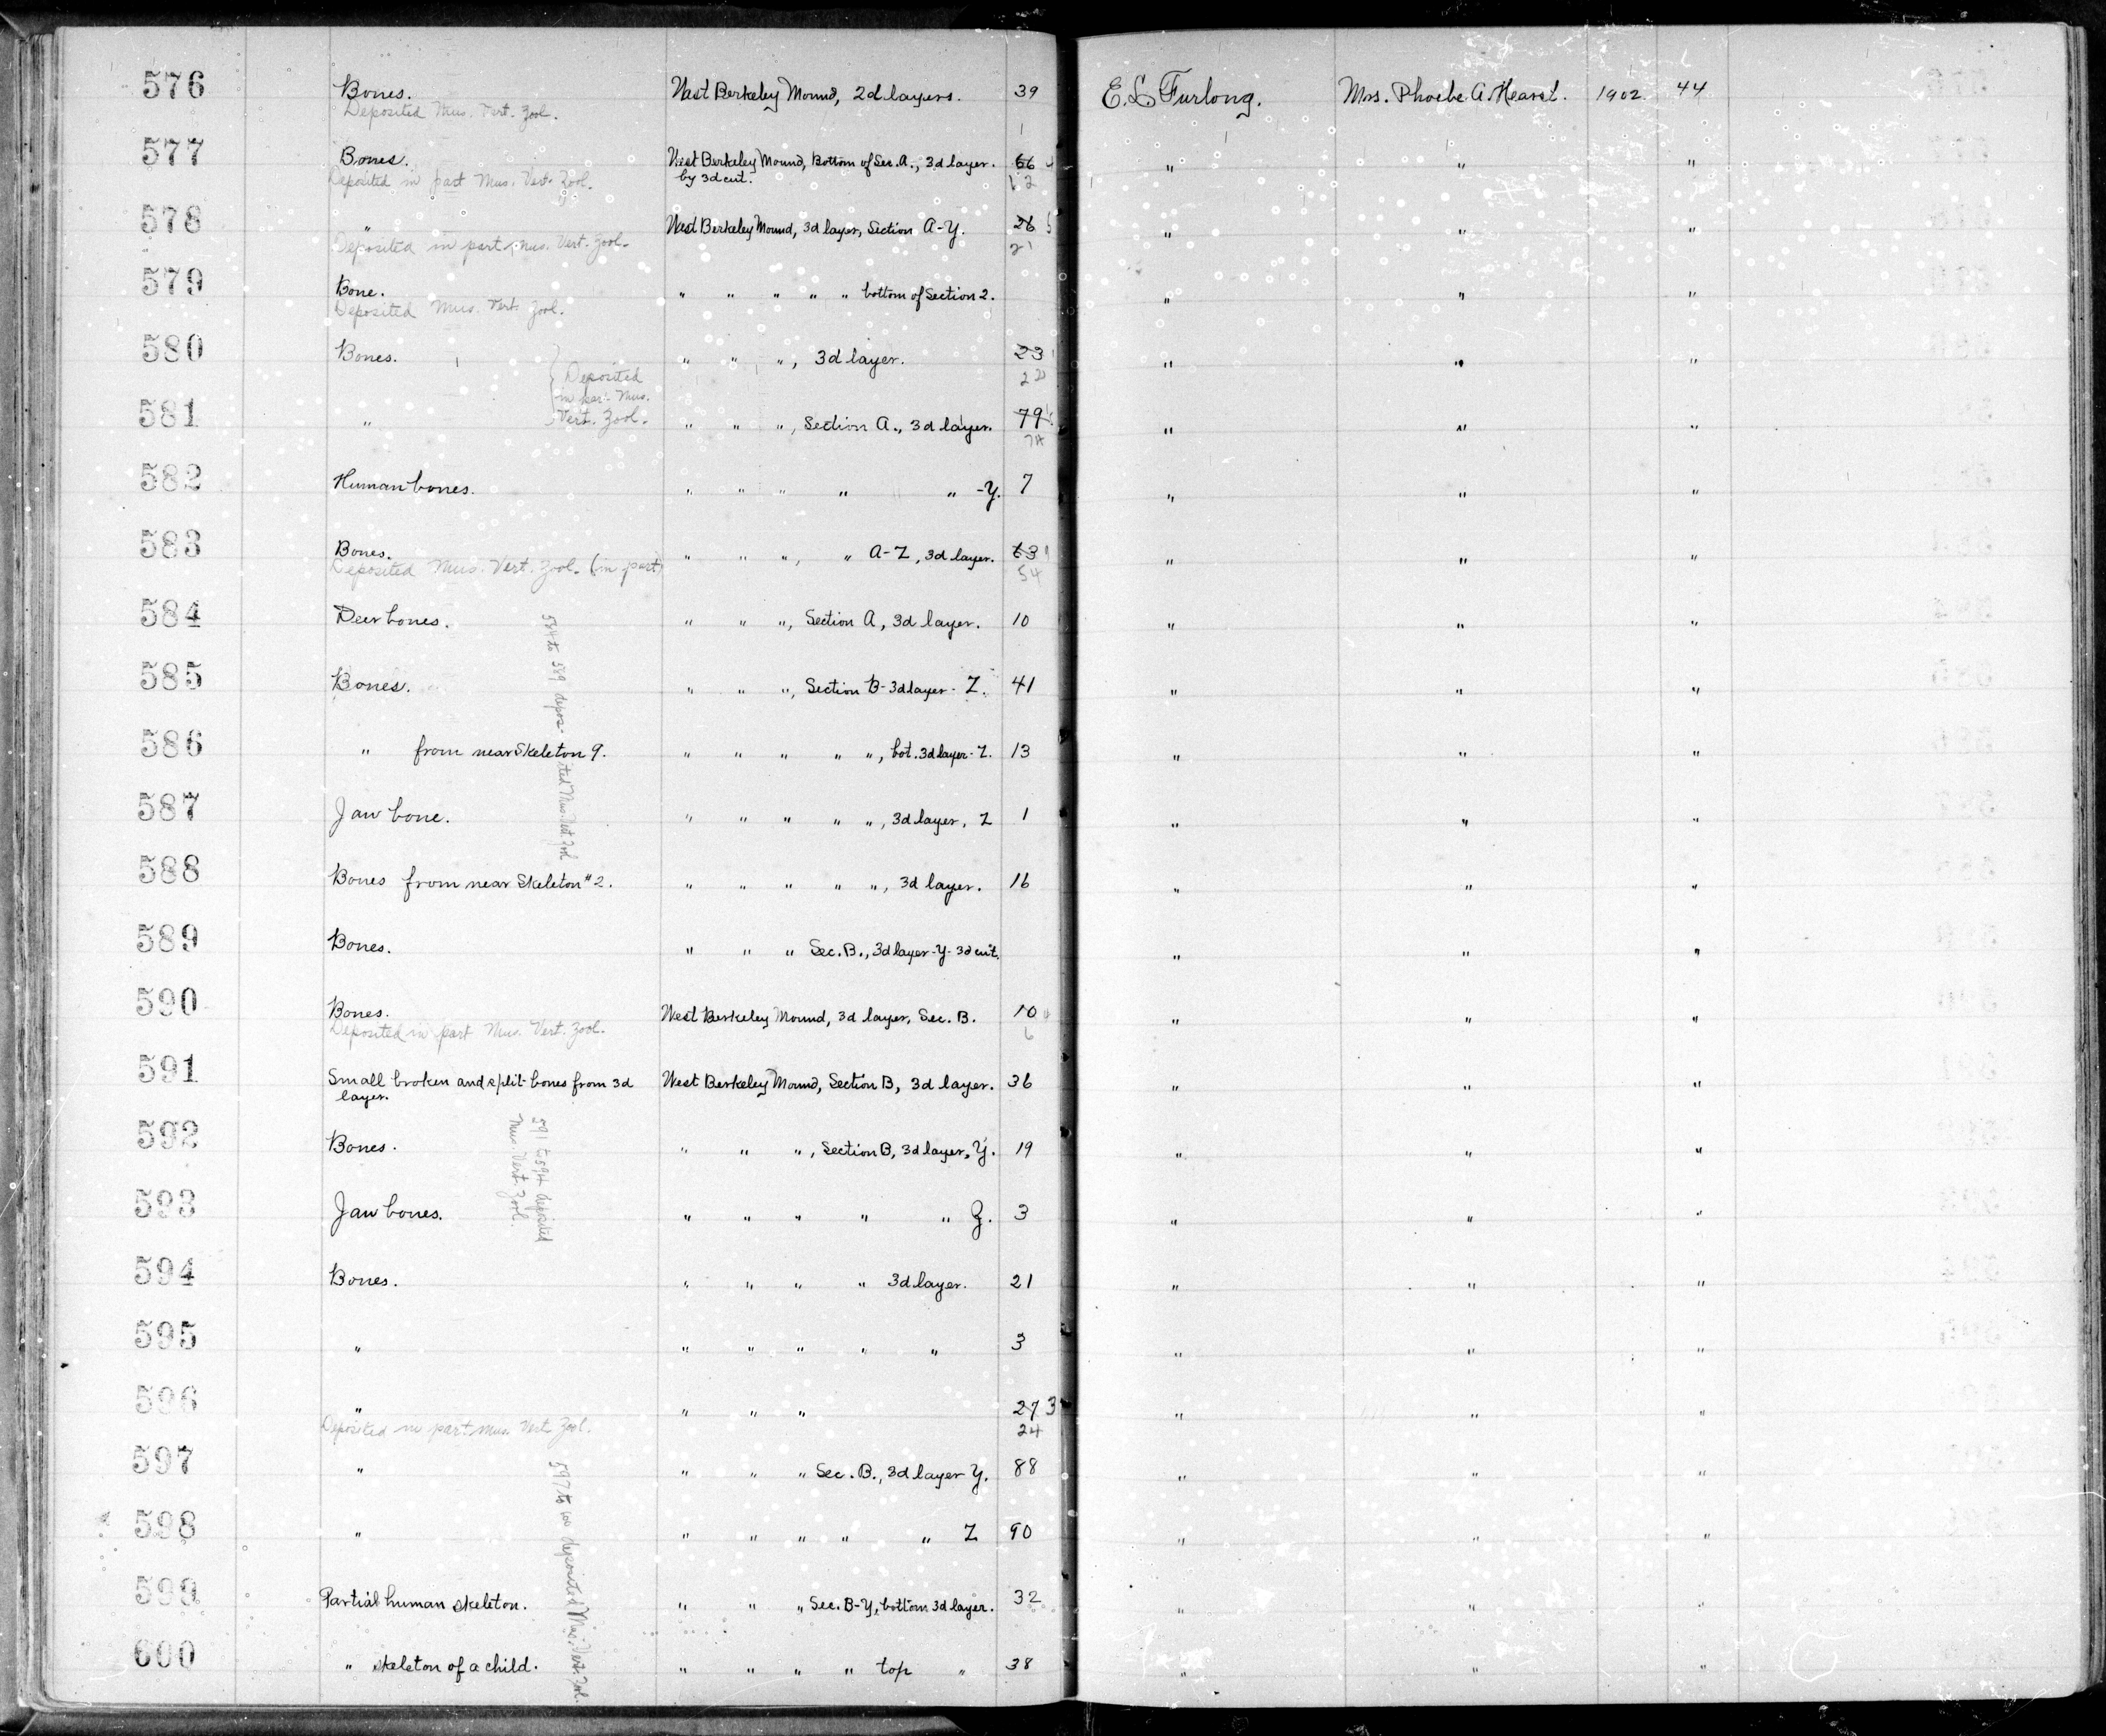 576 Bones. West Berkeley Mound, 2d layers. 39 E. L. Furlong. Mrs. Phoebe A. Hearst. 1902 44
Deposited Mus. Vert. Zool.
577 Bones. West Berkeley Mound, Bottom of Sec. A., 3d layer. 66 " " "
Deposited in part Mus. Vert. Zool. by 3d cut. 62
578 " West Berkeley Mound, 3d layer, Section A-Y. 26 5 " " "
Deposited in part, Mus. Vert. Zool. 21
579 Bone. " " " " " bottom of Section 2. " " "
Deposited Mus. Vert. Zool.
580 Bones. " " ", 3d layer. 23 " " "
Deposited 22
in part Mus.
Vert. Zool.
581 " " " ", Section A., 3d layer. 79 " " "
582 Human bones. " " " " " -Y. 7 " " "
583 Bones. " " ", " A-Z, 3d layer. 63 " " "
Deposited Mus. Vert. Zool. (in part) 54
584 Deer bones. " " ", Section A, 3d layer. 10 " " "
584 to 589 deposited Mus. Vert. Zool
585 Bones. " " ", Section B-3d layer- Z. 41 " " "
586 " from near Skeleton 9. " " " " ", bot. 3d layer-Z. 13 " " "
587 Jaw bone. " " " " ", 3d layer, Z 1 " " "
588 Bones from near Skeleton #2. " " " " ", 3d layer. 16 " " "
589 Bones. " " " Sec. B., 3d layer-Y-3d cut. " " "
590 Bones. West Berkeley Mound, 3d layer, Sec. B. 10 " " "
Deposited in part Mus. Vert. Zool. 6
591 Small broken and split bones from 3d West Berkeley Mound, Section B, 3d layer. 36 " " "
layer.
591 to 594 deposited
Mus. Vert. Zool.
592 Bones. " " ", Section B, 3d layer, Y. 19 " " "
593 Jaw bones. " " " " " Z. 3 " " "
594 Bones. " " " " 3d layer. 21 " " "
595 " " " " " " 3 " " "
596 " " " " 27 3 " " "
Deposited in part Mus. Vert. Zool. 24
597 " " " " Sec. B., 3d layer Y. 88 " " "
597 to 600 deposited Mus. Vert. Zool.
598 " " " " " " Z 90 " " "
599 Partial human skeleton. " " " Sec. B-Y, bottom 3d layer. 32 " " "
600 " skeleton of a child. " " " " top " 38 " " "